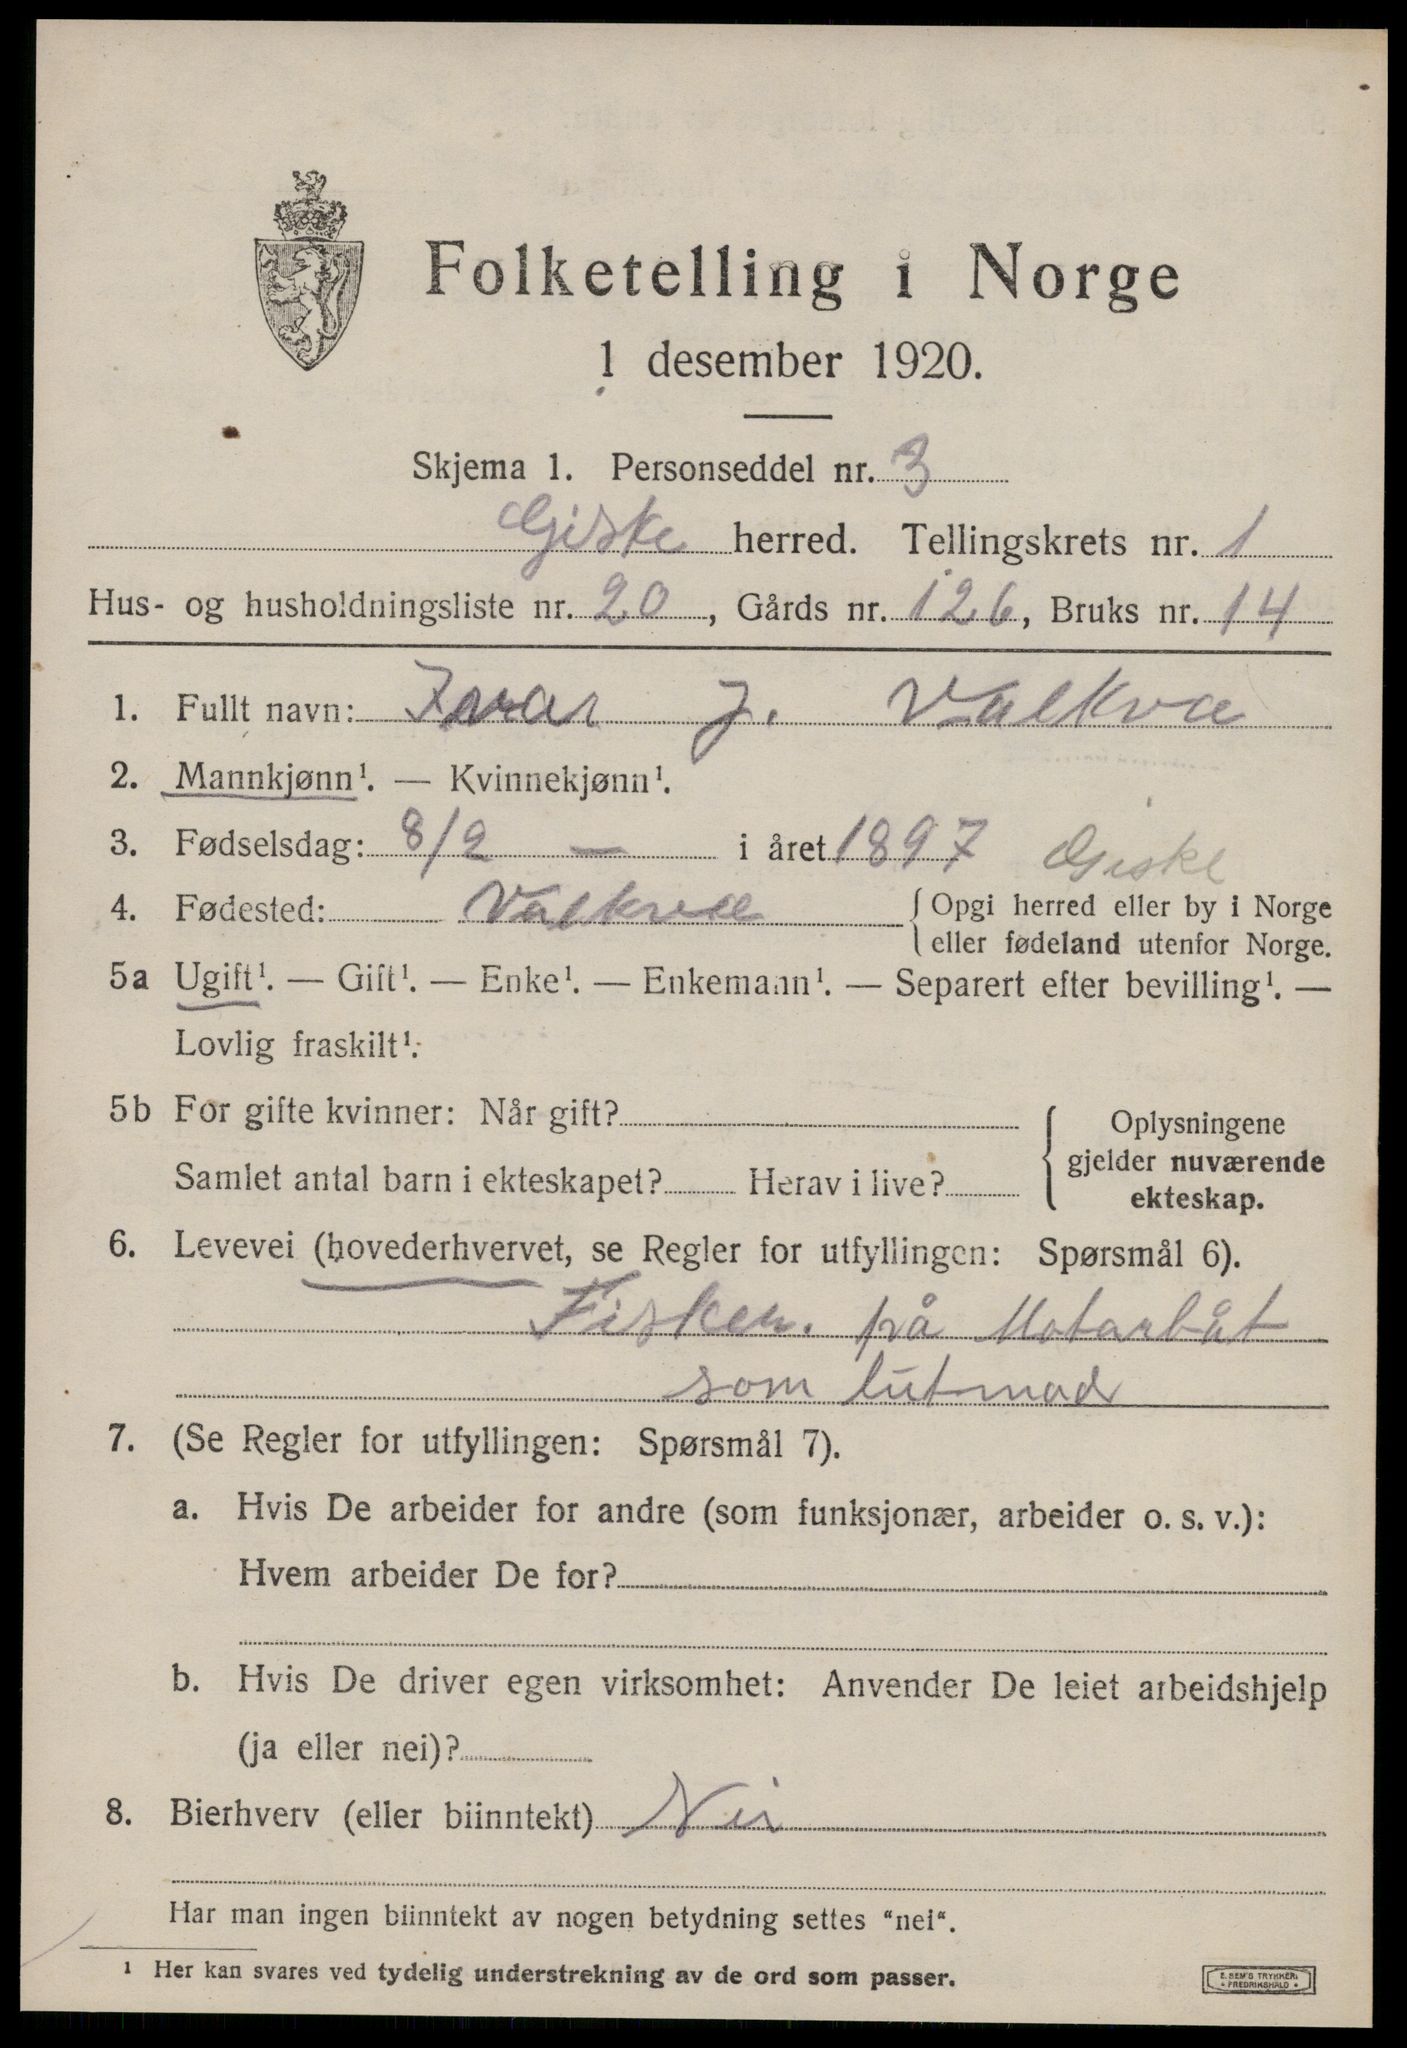 Folketelling i Norge
1 desember 1920.
Skjema 1. Personseddel nr. 3
Giske herred. Tellingskrets nr. 1
Hus- og husholdningsliste nr. 20, Gårds nr. 126, Bruks nr. 14
1. Fullt navn: Ivar J. Valkva
2. Mannkjønn¹. — Kvinnekjønn¹.
3. Fødselsdag: 8/2 — i året 1897 Giske
4. Fødested: Valkvæ { Opgi herred eller by i Norge
eller fødeland utenfor Norge.
5a Ugift¹. — Gift¹. — Enke¹. — Enkemann¹. — Separert efter bevilling¹. —
Lovlig fraskilt¹.
5b For gifte kvinner: Når gift? { Oplysningene
gjelder nuværende
Samlet antal barn i ekteskapet? Herav i live?
ekteskap.
6. Levevei (hovederhvervet, se Regler for utfyllingen: Spørsmål 6).
Fisker. på Motarbåt
som lutmad
7. (Se Regler for utfyllingen: Spørsmål 7).
a. Hvis De arbeider for andre (som funksjonær, arbeider o. s. v.):
Hvem arbeider De for?
b. Hvis De driver egen virksomhet: Anvender De leiet arbeidshjelp
(ja eller nei)?
8. Bierhverv (eller biinntekt) Nei
Har man ingen biinntekt av nogen betydning settes "nei".
¹ Her kan svares ved tydelig understrekning av de ord som passer.
E. SEM'S TRYKKERI
• FREDRIKSHALD •